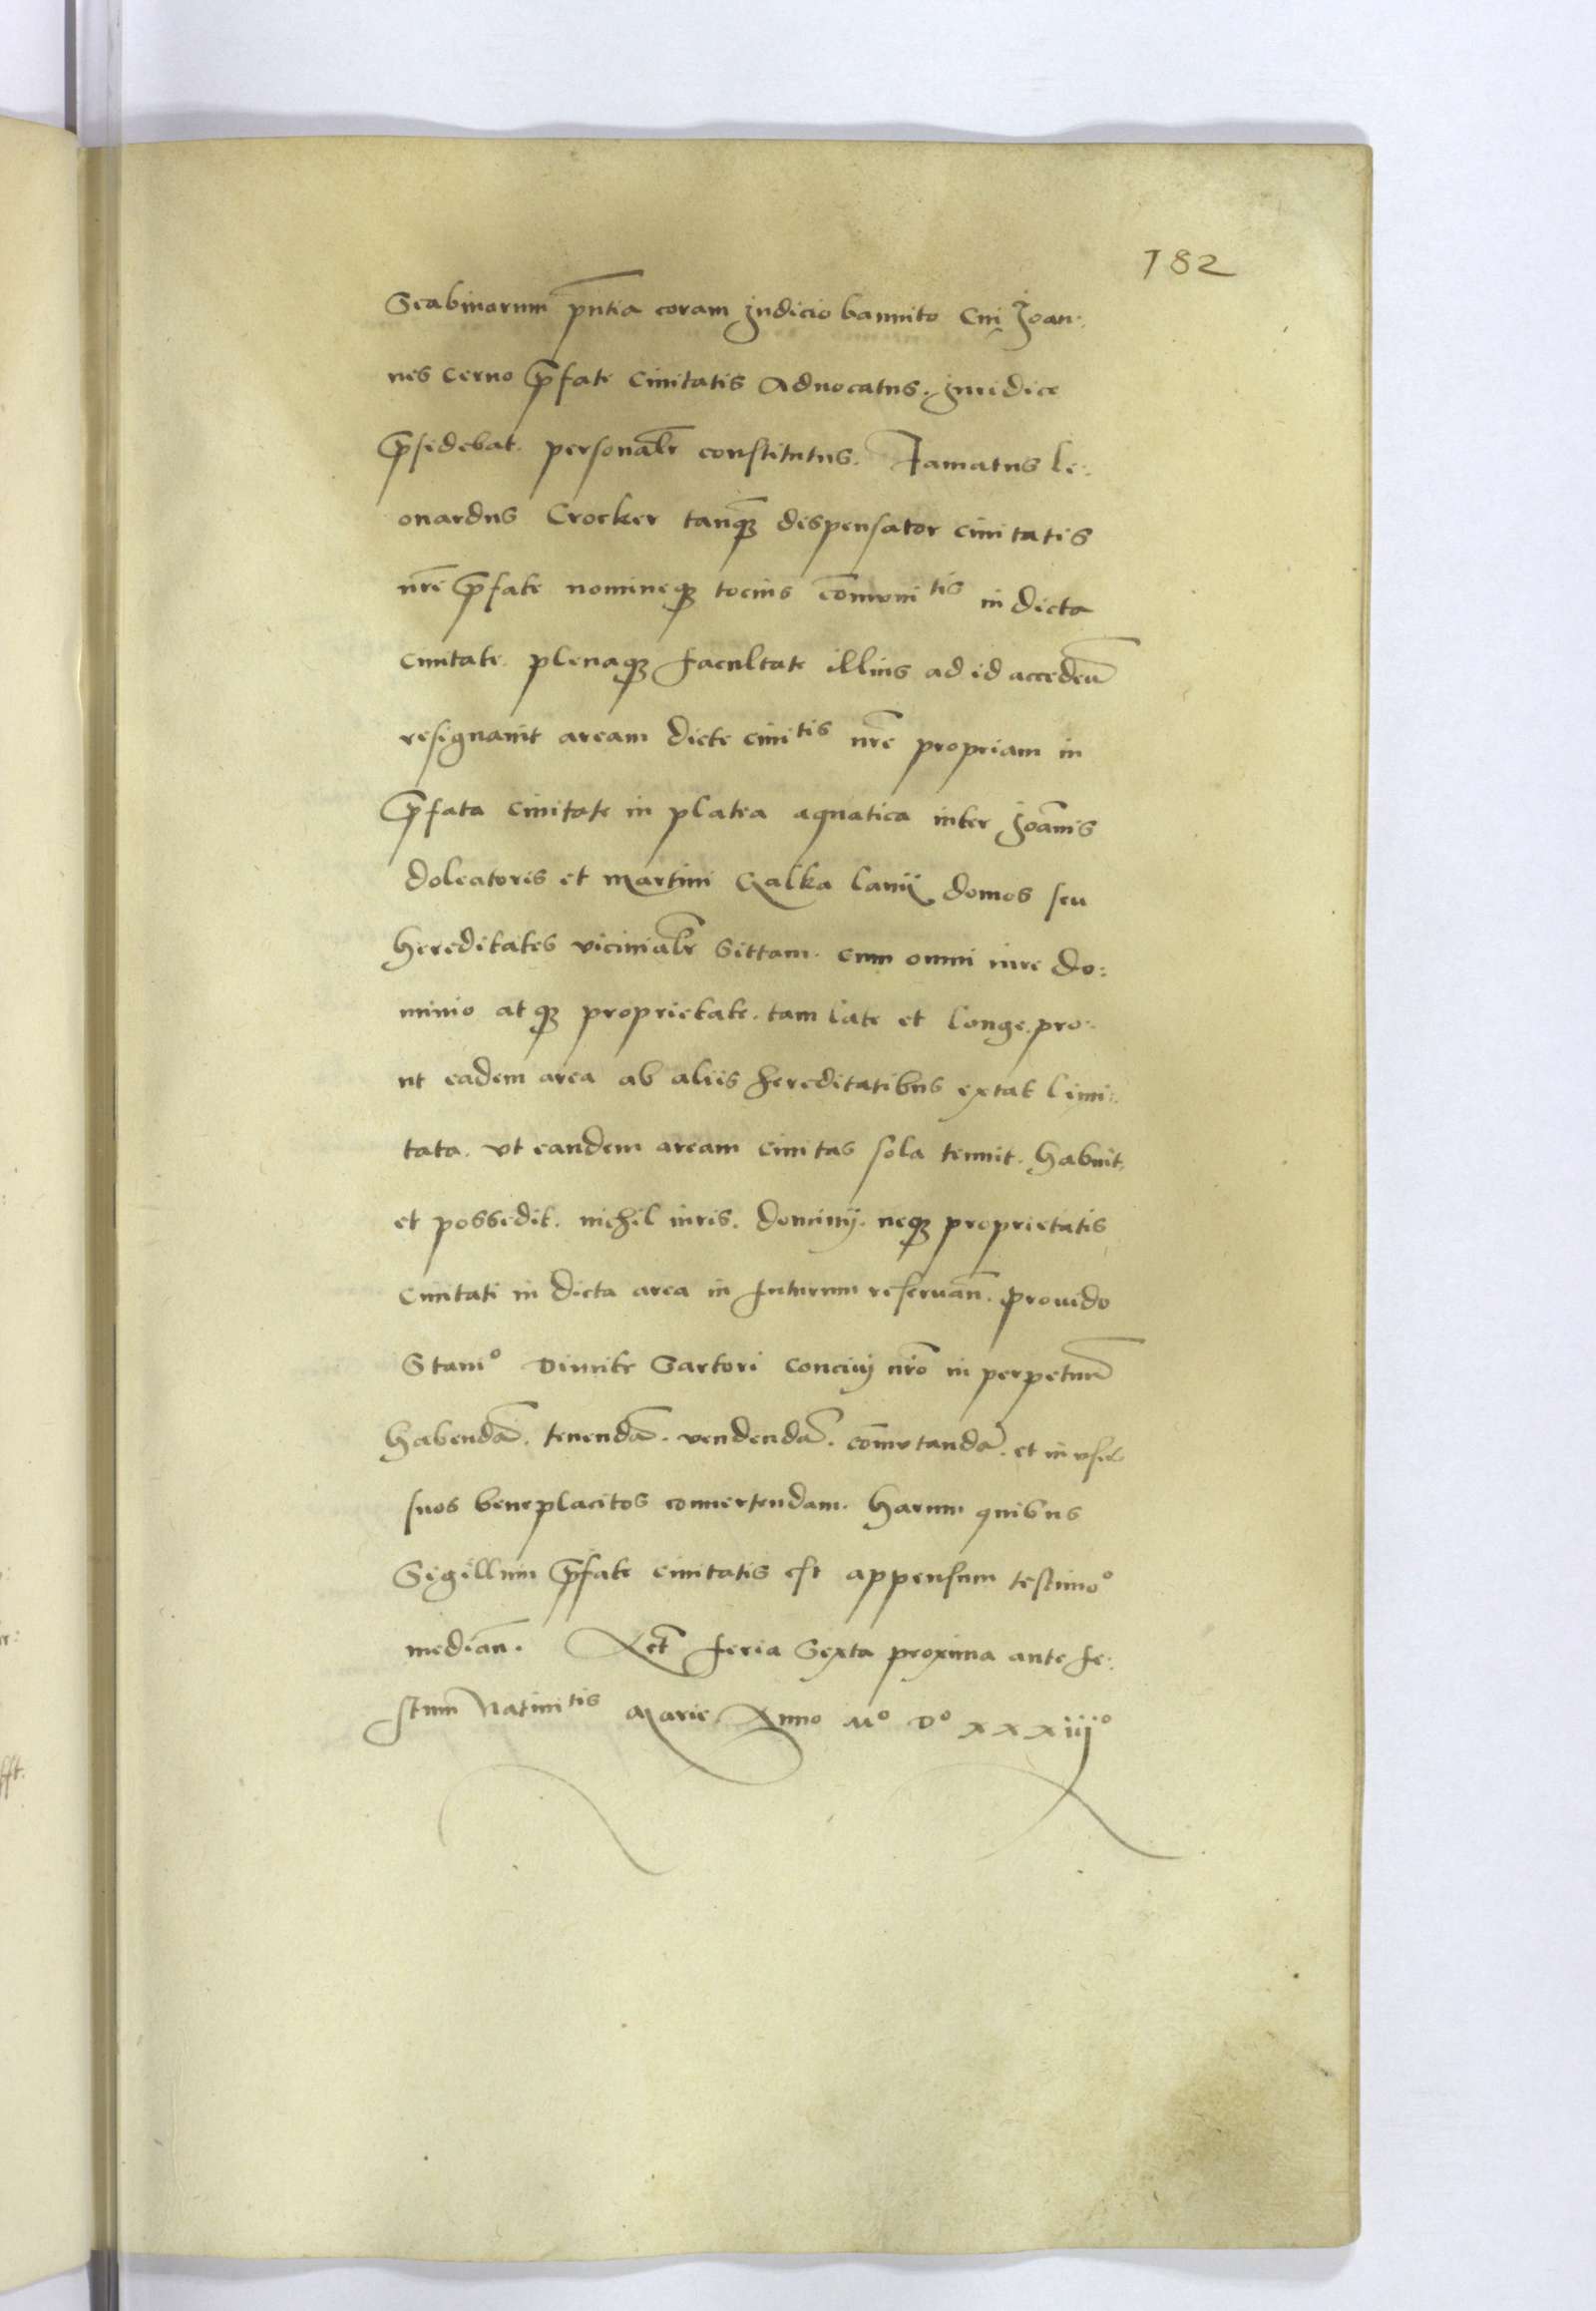 182
Scabinorum p̄ntia coram Judicio bannito Cui Joan:
nes Cerno p̄fate Ciuitatis Aduocatus. Juridice
p̄sidebat. personalr̄ constitutus. Famatus le:
onardus Crocker tanq̄ dispensator ciuitatis
nr̄e p̄fate nomineqȝ tocius com̄uni tis in dicta
ciuitate. plenaqȝ facultate illius ad id acceden̄
resignauit aream dicte ciuitis nr̄e propriam in
p̄fata ciuitate in platea aquatica inter Joān̄is
doleatoris et Martini Galka lanij domos seu
hereditates vicinialr̄ Sittam. cum omni iure do:
minio atqȝ proprietate. tam late et longe. pro:
ut eadem area ab aliis hereditatibus extat limi:
tata. vt eandem aream ciuitas sola tenuit. habuit.
et possedit. nichil iuris. dominij. neqȝ proprietatis
Ciuitati in dicta area in futurum reseruan̄. prouido
Stanio Dimitr Sartori conciuj nr̄o in perpetuū
habendā. tenendā. vendendā. com̄utandā. et in vsus
suos beneplacitos conuertendam. harum quibus
Sigillum p̄fate ciuitatis est appensum testimoo
median̄. Act̄ feria Sexta proxima ante fe:
stum Natiuitis Marie Anno Mo Do xxxiijo